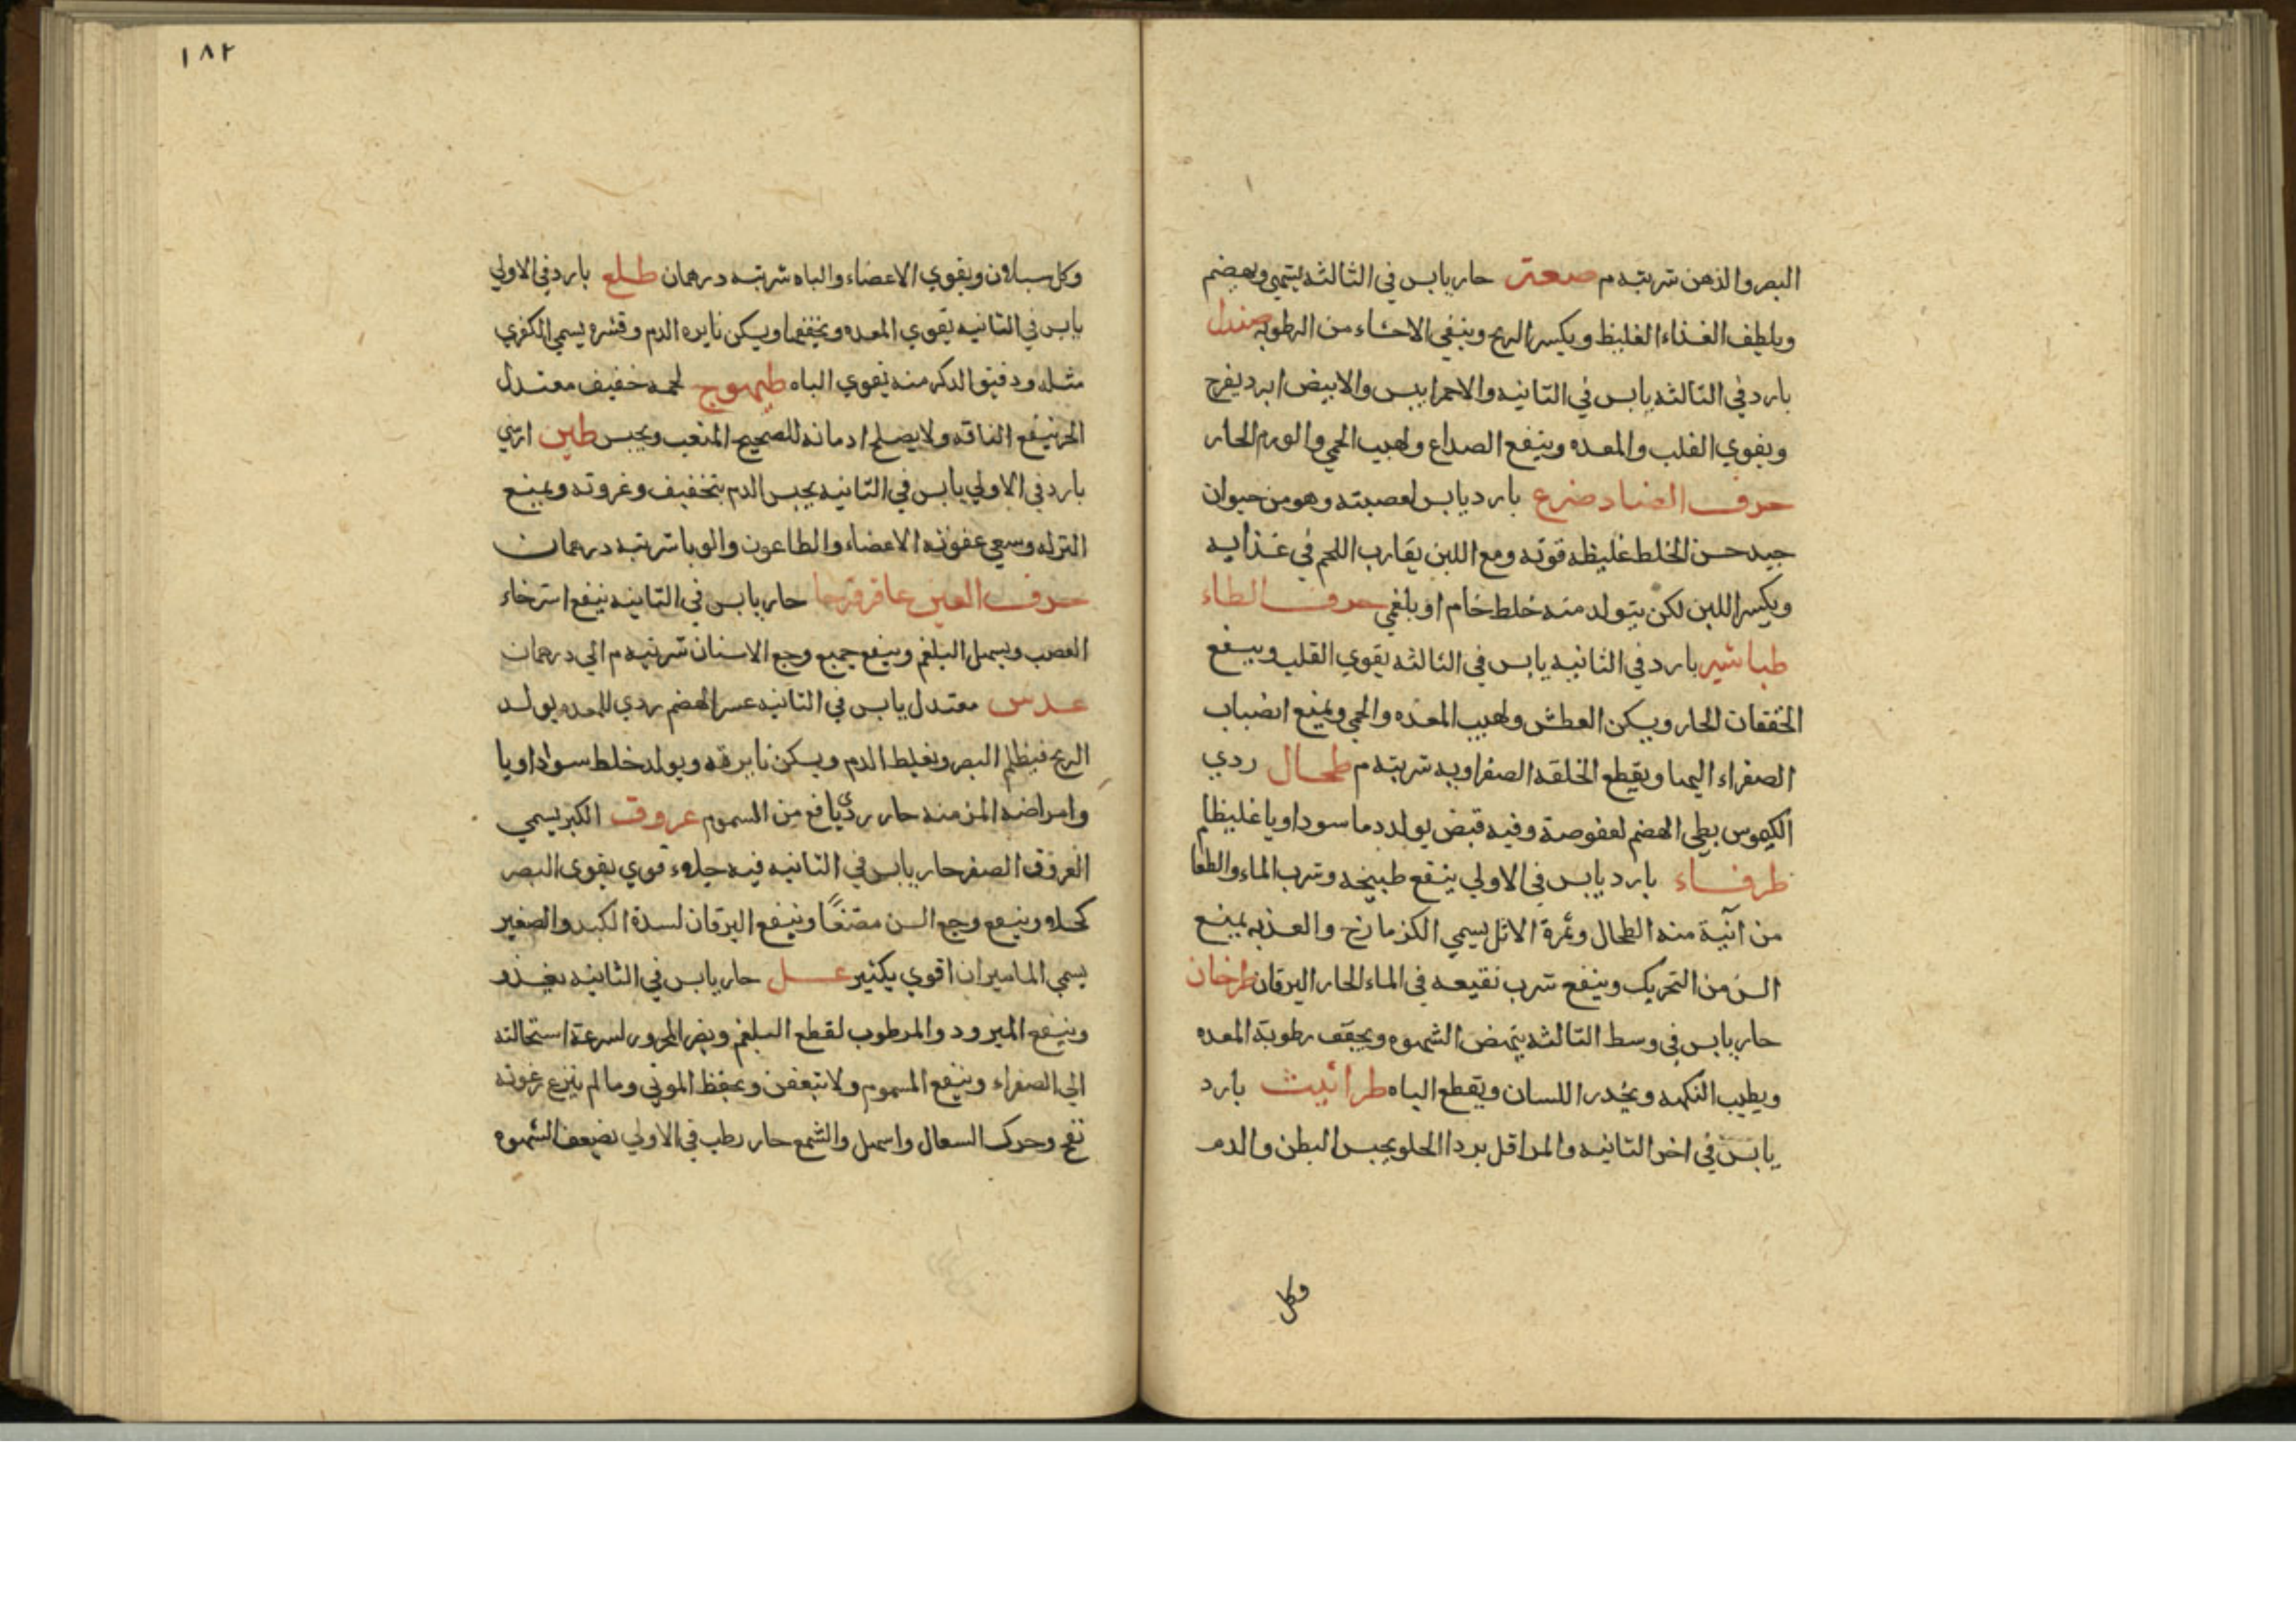 البصر والذهن شربته م صعتر حار يابس في الثالثه يشهي ويهضم
ويلطف الغذاء الغليظ ويكسر الريح وينقي الاحشاء من الرطوبه صندل
بارد في الثالثه يابس في الثانيه والاحمر ايبس والابيض ابرد يفرح
ويقوي القلب والمعده وينفع الصداع ولهيب الحمي والورم الحار
حرف الضاد ضرع بارد يابس لعصبته وهو من حيوان
جيد حسن الخلط غليظه قوته ومع اللبن يقارب اللحم في غذايه
ويكسر اللبن لكن يتولد منه خلط خام او بلغمي حرف الطاء
طباشير بارد في الثانيه يابس في الثالثه يقوي القلب وينفع
الخفقان الحار ويسكن العطش ولهيب المعده والحمي ويمنع انضباب
الصفراء اليها ويقطع الخلفه الصفراويه شربته م طحال ردي
الكيموس بطي الهضم لعفوصة وفيه قبض يولد دما سوداويا غليظا
طرفاء بارد يابس في الاولي ينفع طبيخه وشرب الماء والطعام
من انية منه الطحال وثمرة الاثل يسمي الكزمازخ والعذبه يمنع
السن من التحريك وينفع شرب نقيعه في الماء الحار اليرقان طرخان
حار يابس في وسط الثالثه ينهض الشهوه ويجفف رطوبة المعده
ويطيب النكهه ويخدر اللسان ويقطع الباه طراثيث بارد
يابس في اخر الثانيه والمر اقل بردا الحلو يحبس البطن والدم
وكل
١٨٢
وكل سيلان ويقوي الاعضاء والباه شربته درهمان طلع بارد في الاولي
يابس في الثانيه يقوي المعده ويخففها ويسكن نايره الدم وقشره يسمي الكفري
مثله ودقيق الذكر منه يقوي الباه طيهوج لحمه خفيف معتدل
الحر ينفع الناقه ولا يصلح ادمانه للصحيح المتعب ويحبس طين ارمني
بارد في الاولي يابس في الثانيه يحبس الدم بتخفيف وغروته ويمنع
النزله وسعي عفونه الاعضاء والطاعون والوبا شربته درهمان
حرف العين عاقرقرحا حار يابس في الثانيه ينفع استرخاء
العصب ويسهل البلغم وينفع جميع وجع الاسنان شربته م الي درهمان
عدس معتدل يابس في الثانيه عسر الهضم ردي للمعده يولد
الريح فيظلم البصر ويغلظ الدم ويسكن نايرته ويولد خلط سوداويا
وامراضه المزمنه حار ردي نافع من السموم عروق الكبر يسمي
العروق الصفر حار يابس في الثانيه فيه جلاء قوي يقوي البصر
كحلا وينفع وجع السن مضغا وينفع اليرقان لسدة الكبد والصغير
يسمي الماميران اقوي بكثير عسل حار يابس في الثانيه يغذو
وينفع المبرود والمرطوب لقطع البلغم ويضر المحرور لسرعة استحالته
الي الصفراء وينفع المسموم ولا يتعفن ويحفظ الموتي وما لم ينزع رغوته
نفخ وحرك السعال واسهل والشمع حار رطب في الاولي يضعف الشهوه